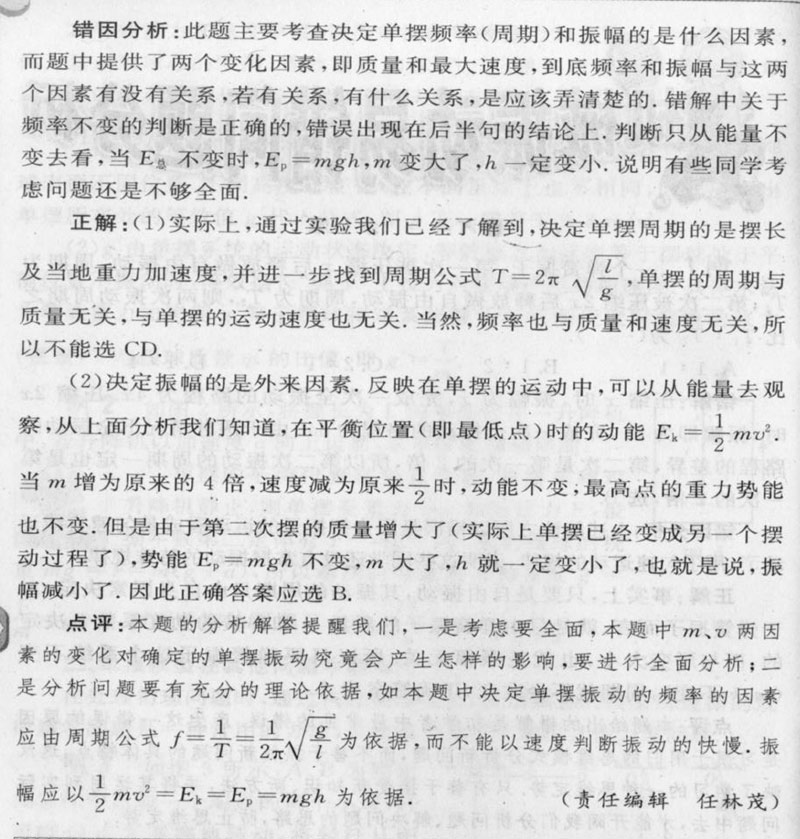 错因分析:此题主要考查决定单摆频率(周期)和振幅的是什么因素,
而题中提供了两个变化因素,即质量和最大速度,到底频率和振幅与这两
个因素有没有关系,若有关系,有什么关系,是应该弄清楚的.错解中关于
频率不变的判断是正确的,错误出现在后半句的结论上.判断只从能量不
变去看,当 E总 不变时,Eₚ=mgh,m 变大了,h 一定变小.说明有些同学考
虑问题还是不够全面.
正解:(1)实际上,通过实验我们已经了解到,决定单摆周期的是摆长
及当地重力加速度,并进一步找到周期公式 T=2π √(l/g),单摆的周期与
质量无关,与单摆的运动速度也无关.当然,频率也与质量和速度无关,所
以不能选 CD.
(2)决定振幅的是外来因素.反映在单摆的运动中,可以从能量去观
察,从上面分析我们知道,在平衡位置(即最低点)时的动能 Eₖ=1/2 mv².
当 m 增为原来的 4 倍,速度减为原来1/2时,动能不变;最高点的重力势能
也不变.但是由于第二次摆的质量增大了(实际上单摆已经变成另一个摆
动过程了),势能 Eₚ=mgh 不变,m 大了,h 就一定变小了,也就是说,振
幅减小了.因此正确答案应选 B.
点评:本题的分析解答提醒我们,一是考虑要全面,本题中 m、v 两因
素的变化对确定的单摆振动究竟会产生怎样的影响,要进行全面分析;二
是分析问题要有充分的理论依据,如本题中决定单摆振动的频率的因素
应由周期公式 f=1/T=1/2π√(g/l) 为依据,而不能以速度判断振动的快慢.振
幅应以1/2 mv²=Eₖ=Eₚ=mgh 为依据. (责任编辑 任林茂)